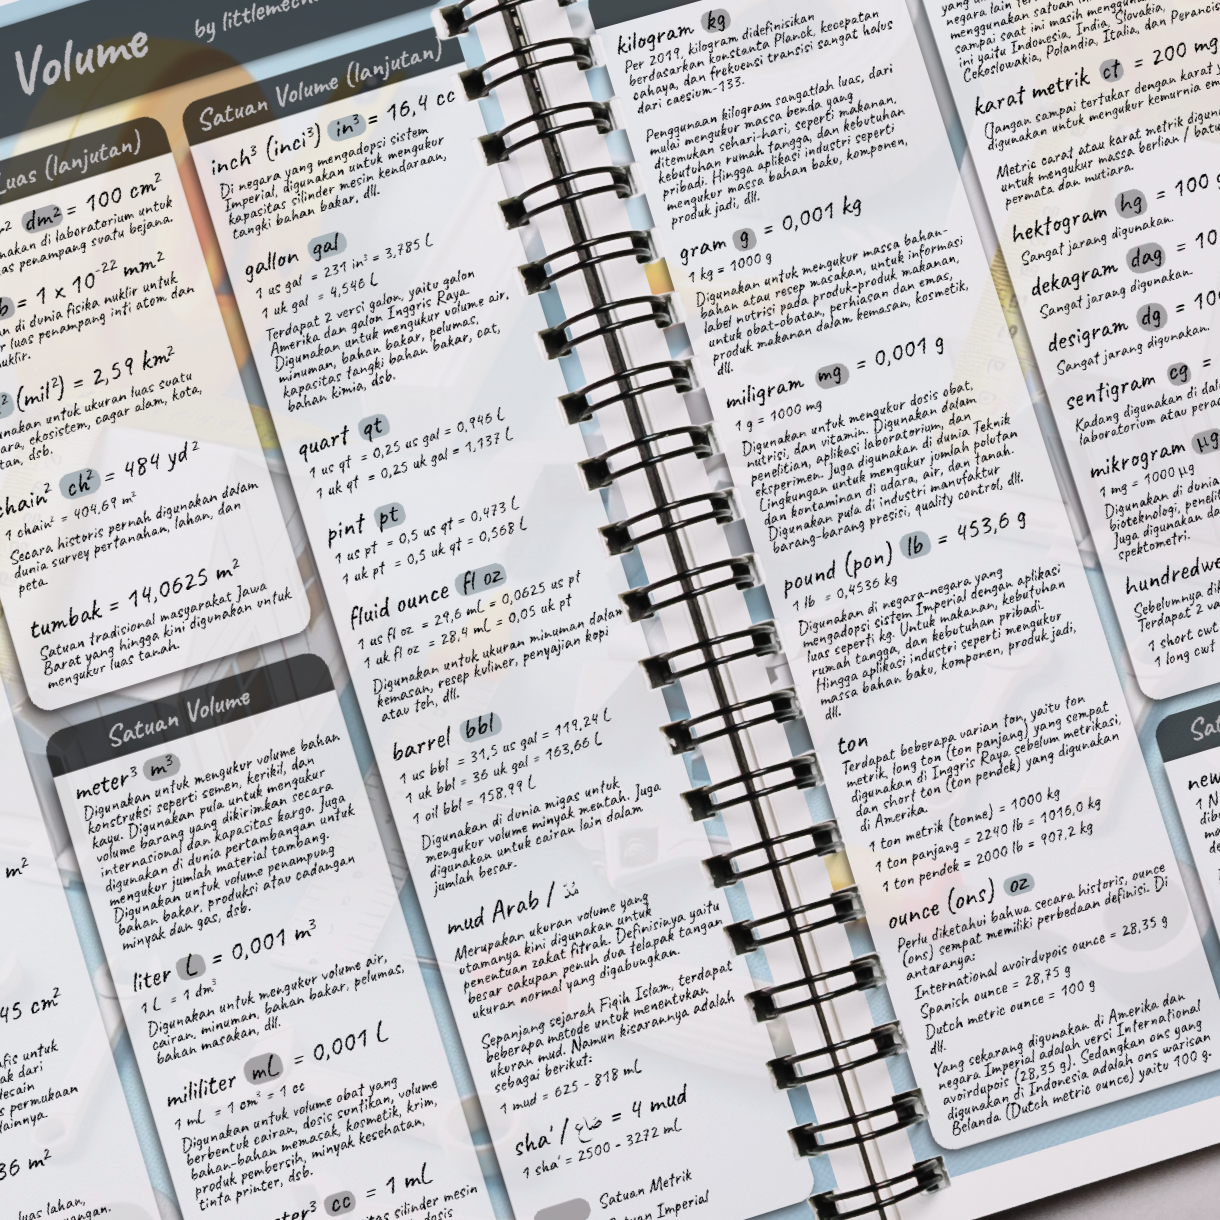 Volume
by littlemech
Luas (lanjutan)
dm² = 100 cm²
nakan di laboratorium untuk
as penampang suatu bejana.
b = 1 x 10⁻²² mm²
an di dunia fisika nuklir untuk
r luas penampang inti atom dan
uklir.
² (mil²) = 2,59 km²
unakan untuk ukuran luas suatu
ara, ekosistem, cagar alam, kota,
tan, dsb.
chain² ch² = 484 yd²
1 chain² = 404,69 m²
Secara historis pernah digunakan dalam
dunia survey pertanahan, lahan, dan
peta.
tumbak = 14,0625 m²
Satuan tradisional masyarakat Jawa
Barat yang hingga kini digunakan untuk
mengukur luas tanah.
m²
45 cm²
afis untuk
ak dari
esain
s permukaan
lainnya.
36 m²
as lahan,
angan.
Satuan Volume
meter³ m³
Digunakan untuk mengukur volume bahan
konstruksi seperti semen, kerikil, dan
kayu. Digunakan pula untuk mengukur
volume barang yang dikirimkan secara
internasional dan kapasitas kargo. Juga
digunakan di dunia pertambangan untuk
mengukur jumlah material tambang.
Digunakan untuk volume penampung
bahan bakar, produksi atau cadangan
minyak dan gas, dsb.
liter L = 0,001 m³
1 L = 1 dm³
Digunakan untuk mengukur volume air,
cairan, minuman, bahan bakar, pelumas,
bahan masakan, dll.
mililiter mL = 0,001 L
1 mL = 1 cm³ = 1 cc
Digunakan untuk volume obat yang
berbentuk cairan, dosis suntikan, volume
bahan-bahan memasak, kosmetik, krim,
produk pembersih, minyak kesehatan,
tinta printer, dsb.
ter³ cc = 1 mL
tas silinder mesin
dosis
Satuan Volume (lanjutan)
inch³ (inci³) in³ = 16,4 cc
Di negara yang mengadopsi sistem
Imperial, digunakan untuk mengukur
kapasitas silinder mesin kendaraan,
tangki bahan bakar, dll.
gallon gal
1 us gal = 231 in³ = 3,785 L
1 uk gal = 4,546 L
Terdapat 2 versi galon, yaitu galon
Amerika dan galon Inggris Raya.
Digunakan untuk mengukur volume air,
minuman, bahan bakar, pelumas,
kapasitas tangki bahan bakar, cat,
bahan kimia, dsb.
quart qt
1 us qt = 0,25 us gal = 0,946 L
1 uk qt = 0,25 uk gal = 1,137 L
pint pt
1 us pt = 0,5 us qt = 0,473 L
1 uk pt = 0,5 uk qt = 0,568 L
fluid ounce fl oz
1 us fl oz = 29,6 mL = 0,0625 us pt
1 uk fl oz = 28,4 mL = 0,05 uk pt
Digunakan untuk ukuran minuman dalam
kemasan, resep kuliner, penyajian kopi
atau teh, dll.
barrel bbl
1 us bbl = 31,5 us gal = 119,24 L
1 uk bbl = 36 uk gal = 163,66 L
1 oil bbl = 158,99 L
Digunakan di dunia migas untuk
mengukur volume minyak mentah. Juga
digunakan untuk cairan lain dalam
jumlah besar.
mud Arab / مُدّ
Merupakan ukuran volume yang
utamanya kini digunakan untuk
penentuan zakat fitrah. Definisinya yaitu
besar cakupan penuh dua telapak tangan
ukuran normal yang digabungkan.
Sepanjang sejarah Fiqih Islam, terdapat
beberapa metode untuk menentukan
ukuran mud. Namun kisarannya adalah
sebagai berikut:
1 mud = 625 - 818 mL
sha' / صَاع = 4 mud
1 sha' = 2500 - 3272 mL
Satuan Metrik
tuan Imperial
kilogram kg
Per 2019, kilogram didefinisikan
berdasarkan konstanta Planck, kecepatan
cahaya, dan frekuensi transisi sangat halus
dari caesium-133.
Penggunaan kilogram sangatlah luas, dari
mulai mengukur massa benda yang
ditemukan sehari-hari, seperti makanan,
kebutuhan rumah tangga, dan kebutuhan
pribadi. Hingga aplikasi industri seperti
mengukur massa bahan baku, komponen,
produk jadi, dll.
gram g = 0,001 kg
1 kg = 1000 g
Digunakan untuk mengukur massa bahan-
bahan atau resep masakan, untuk informasi
label nutrisi pada produk-produk makanan,
untuk obat-obatan, perhiasan dan emas,
produk makanan dalam kemasan, kosmetik,
dll.
miligram mg = 0,001 g
1 g = 1000 mg
Digunakan untuk mengukur dosis obat,
nutrisi, dan vitamin. Digunakan dalam
penelitian, aplikasi laboratorium, dan
eksperimen. Juga digunakan di dunia Teknik
Lingkungan untuk mengukur jumlah polutan
dan kontaminan di udara, air, dan tanah.
Digunakan pula di industri manufaktur
barang-barang presisi, quality control, dll.
pound (pon) lb = 453,6 g
1 lb = 0,4536 kg
Digunakan di negara-negara yang
mengadopsi sistem Imperial dengan aplikasi
luas seperti kg. Untuk makanan, kebutuhan
rumah tangga, dan kebutuhan pribadi.
Hingga aplikasi industri seperti mengukur
massa bahan baku, komponen, produk jadi,
dll.
ton
Terdapat beberapa varian ton, yaitu ton
metrik, long ton (ton panjang) yang sempat
digunakan di Inggris Raya sebelum metrikasi,
dan short ton (ton pendek) yang digunakan
di Amerika.
1 ton metrik (tonne) = 1000 kg
1 ton panjang = 2240 lb = 1016,0 kg
1 ton pendek = 2000 lb = 907,2 kg
ounce (ons) oz
Perlu diketahui bahwa secara historis, ounce
(ons) sempat memiliki perbedaan definisi. Di
antaranya:
International avoirdupois ounce = 28,35 g
Spanish ounce = 28,75 g
Dutch metric ounce = 100 g
dll.
Yang sekarang digunakan di Amerika dan
negara Imperial adalah versi International
avoirdupois (28,35 g). Sedangkan ons yang
digunakan di Indonesia adalah ons warisan
Belanda (Dutch metric ounce) yaitu 100 g.
negara lain
menggunakan satuan
sampai saat ini masih menggunak
ini yaitu Indonesia, India, Slovakia,
Cekoslowakia, Polandia, Italia, dan Perancis
karat metrik ct = 200 mg
(Jangan sampai tertukar dengan karat y
digunakan untuk mengukur kemurnia em
Metric carat atau karat metrik digun
untuk mengukur massa berlian / batu
permata dan mutiara.
hektogram hg = 100 g
Sangat jarang digunakan.
dekagram dag = 10
Sangat jarang digunakan.
desigram dg = 10
Sangat jarang digunakan.
sentigram cg =
Kadang digunakan di dal
laboratorium atau perac
mikrogram µg
1 mg = 1000 µg
Digunakan di dunia
bioteknologi, penelit
Juga digunakan da
spektometri.
hundredwe
Sebelumnya di
Terdapat 2 va
1 short cwt
1 long cwt
Sat
new
1 N